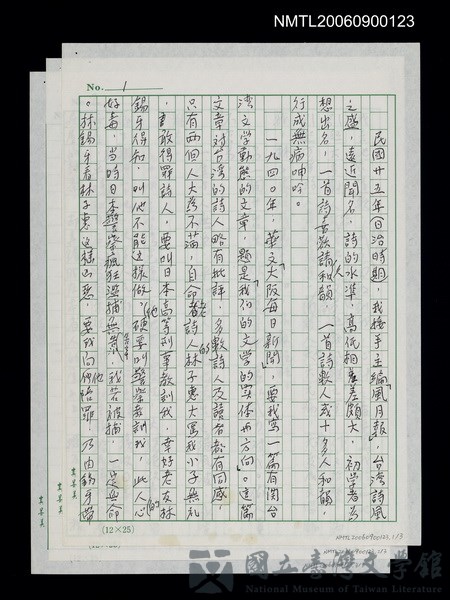 NMTL20060900123
No. 1
民國廿五年(日治時期)，我接手主編「風月報」，台灣詩風
之盛，遠近聞名，詩人的水準，高低相差頗大，初學者為
想出名，一首詩甚敢請和韻，一首詩數人或十多人和韻，
行成無病呻吟。
一九四○年，「華文大阪每日新聞」，要我寫一篇有関台
湾文學動態的文章，題是「我们的文学的实体与方向」。這篇
文章对台湾的詩人略有批評，多數詩人及讀者都有同感，
只有两個人大為不滿，自命老詩人的林子惠大駡我小子無礼
，事敢得罪詩人，要叫日本高等刑事教訓我，幸好老友林
錫牙得知，叫他不能這樣做，他硬要叫警察教訓我，此人心的
好毒，当時日本警察瘋狂濫捕無辜，我若被捕，一定無命
。林錫牙看林子惠这樣凶惡，要我向他悟罪，乃由錫牙帶
(12×25)
NMTL20060900123 1/3
國立臺灣文學館
National Museum of Taiwan Literature